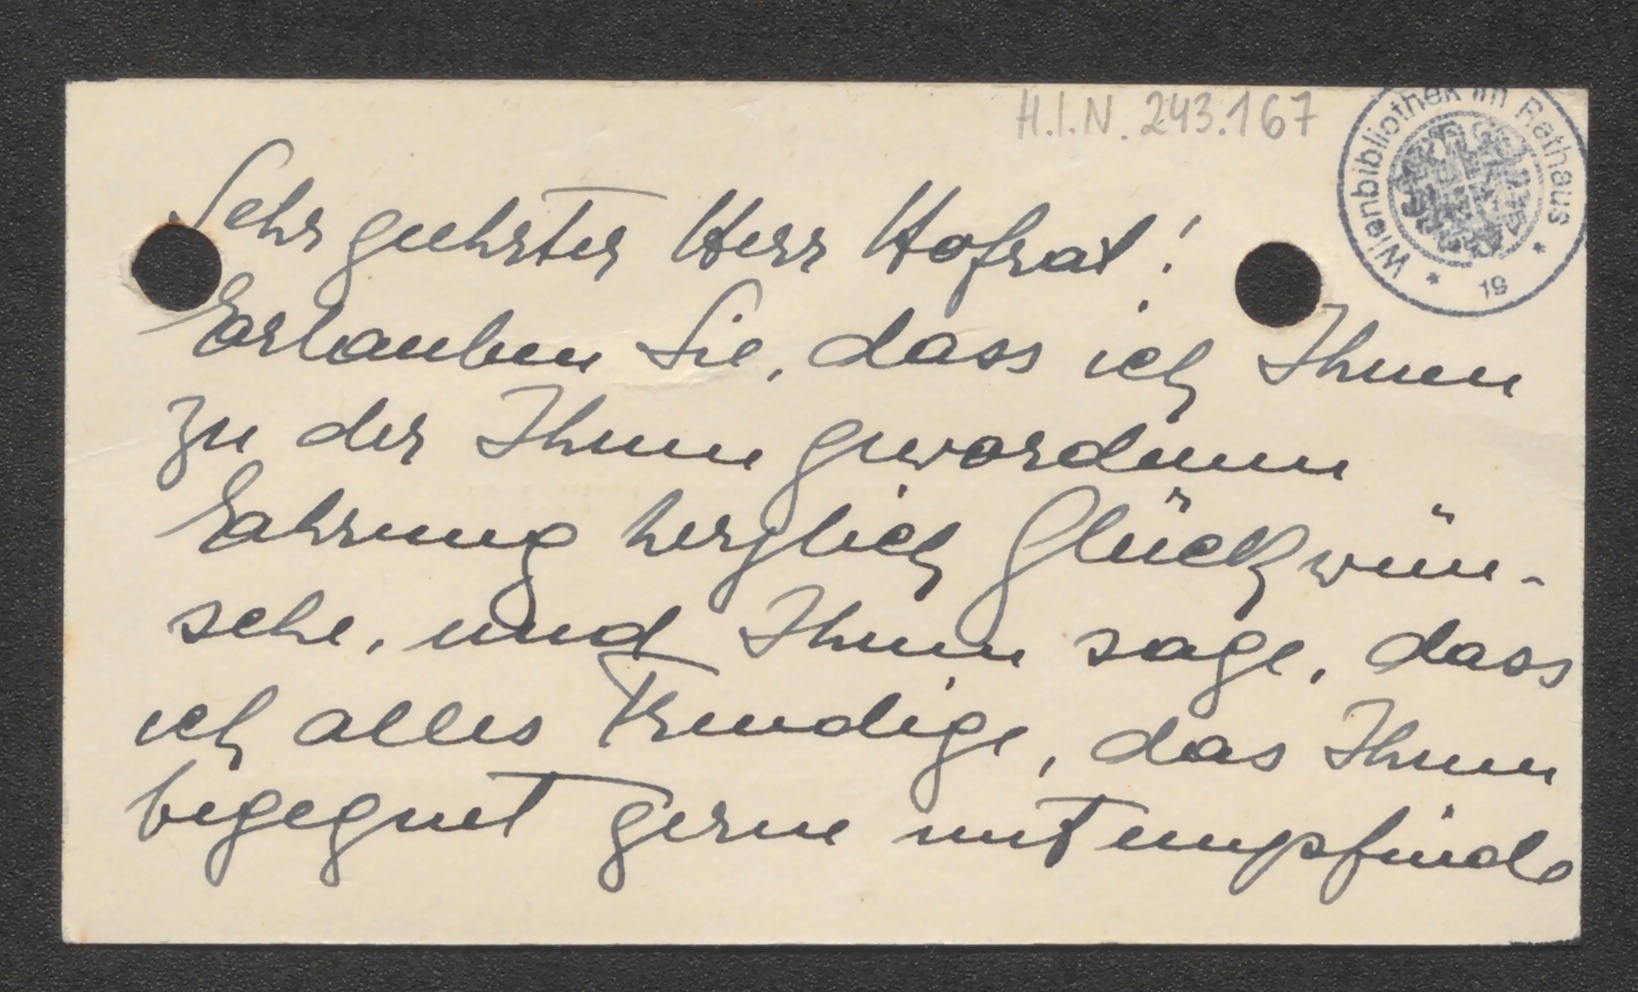 H.I.N. 243.167
Wienbibliothek im Rathaus * 19 *
Sehr geehrter Herr Hofrat!
Erlauben Sie, dass ich Ihnen
zu der Ihnen gewordenen
Ehrung herzlich Glückwün-
sche, und Ihnen sage, dass
ich alles Freudige, das Ihnen
begegnet gerne mitempfinde